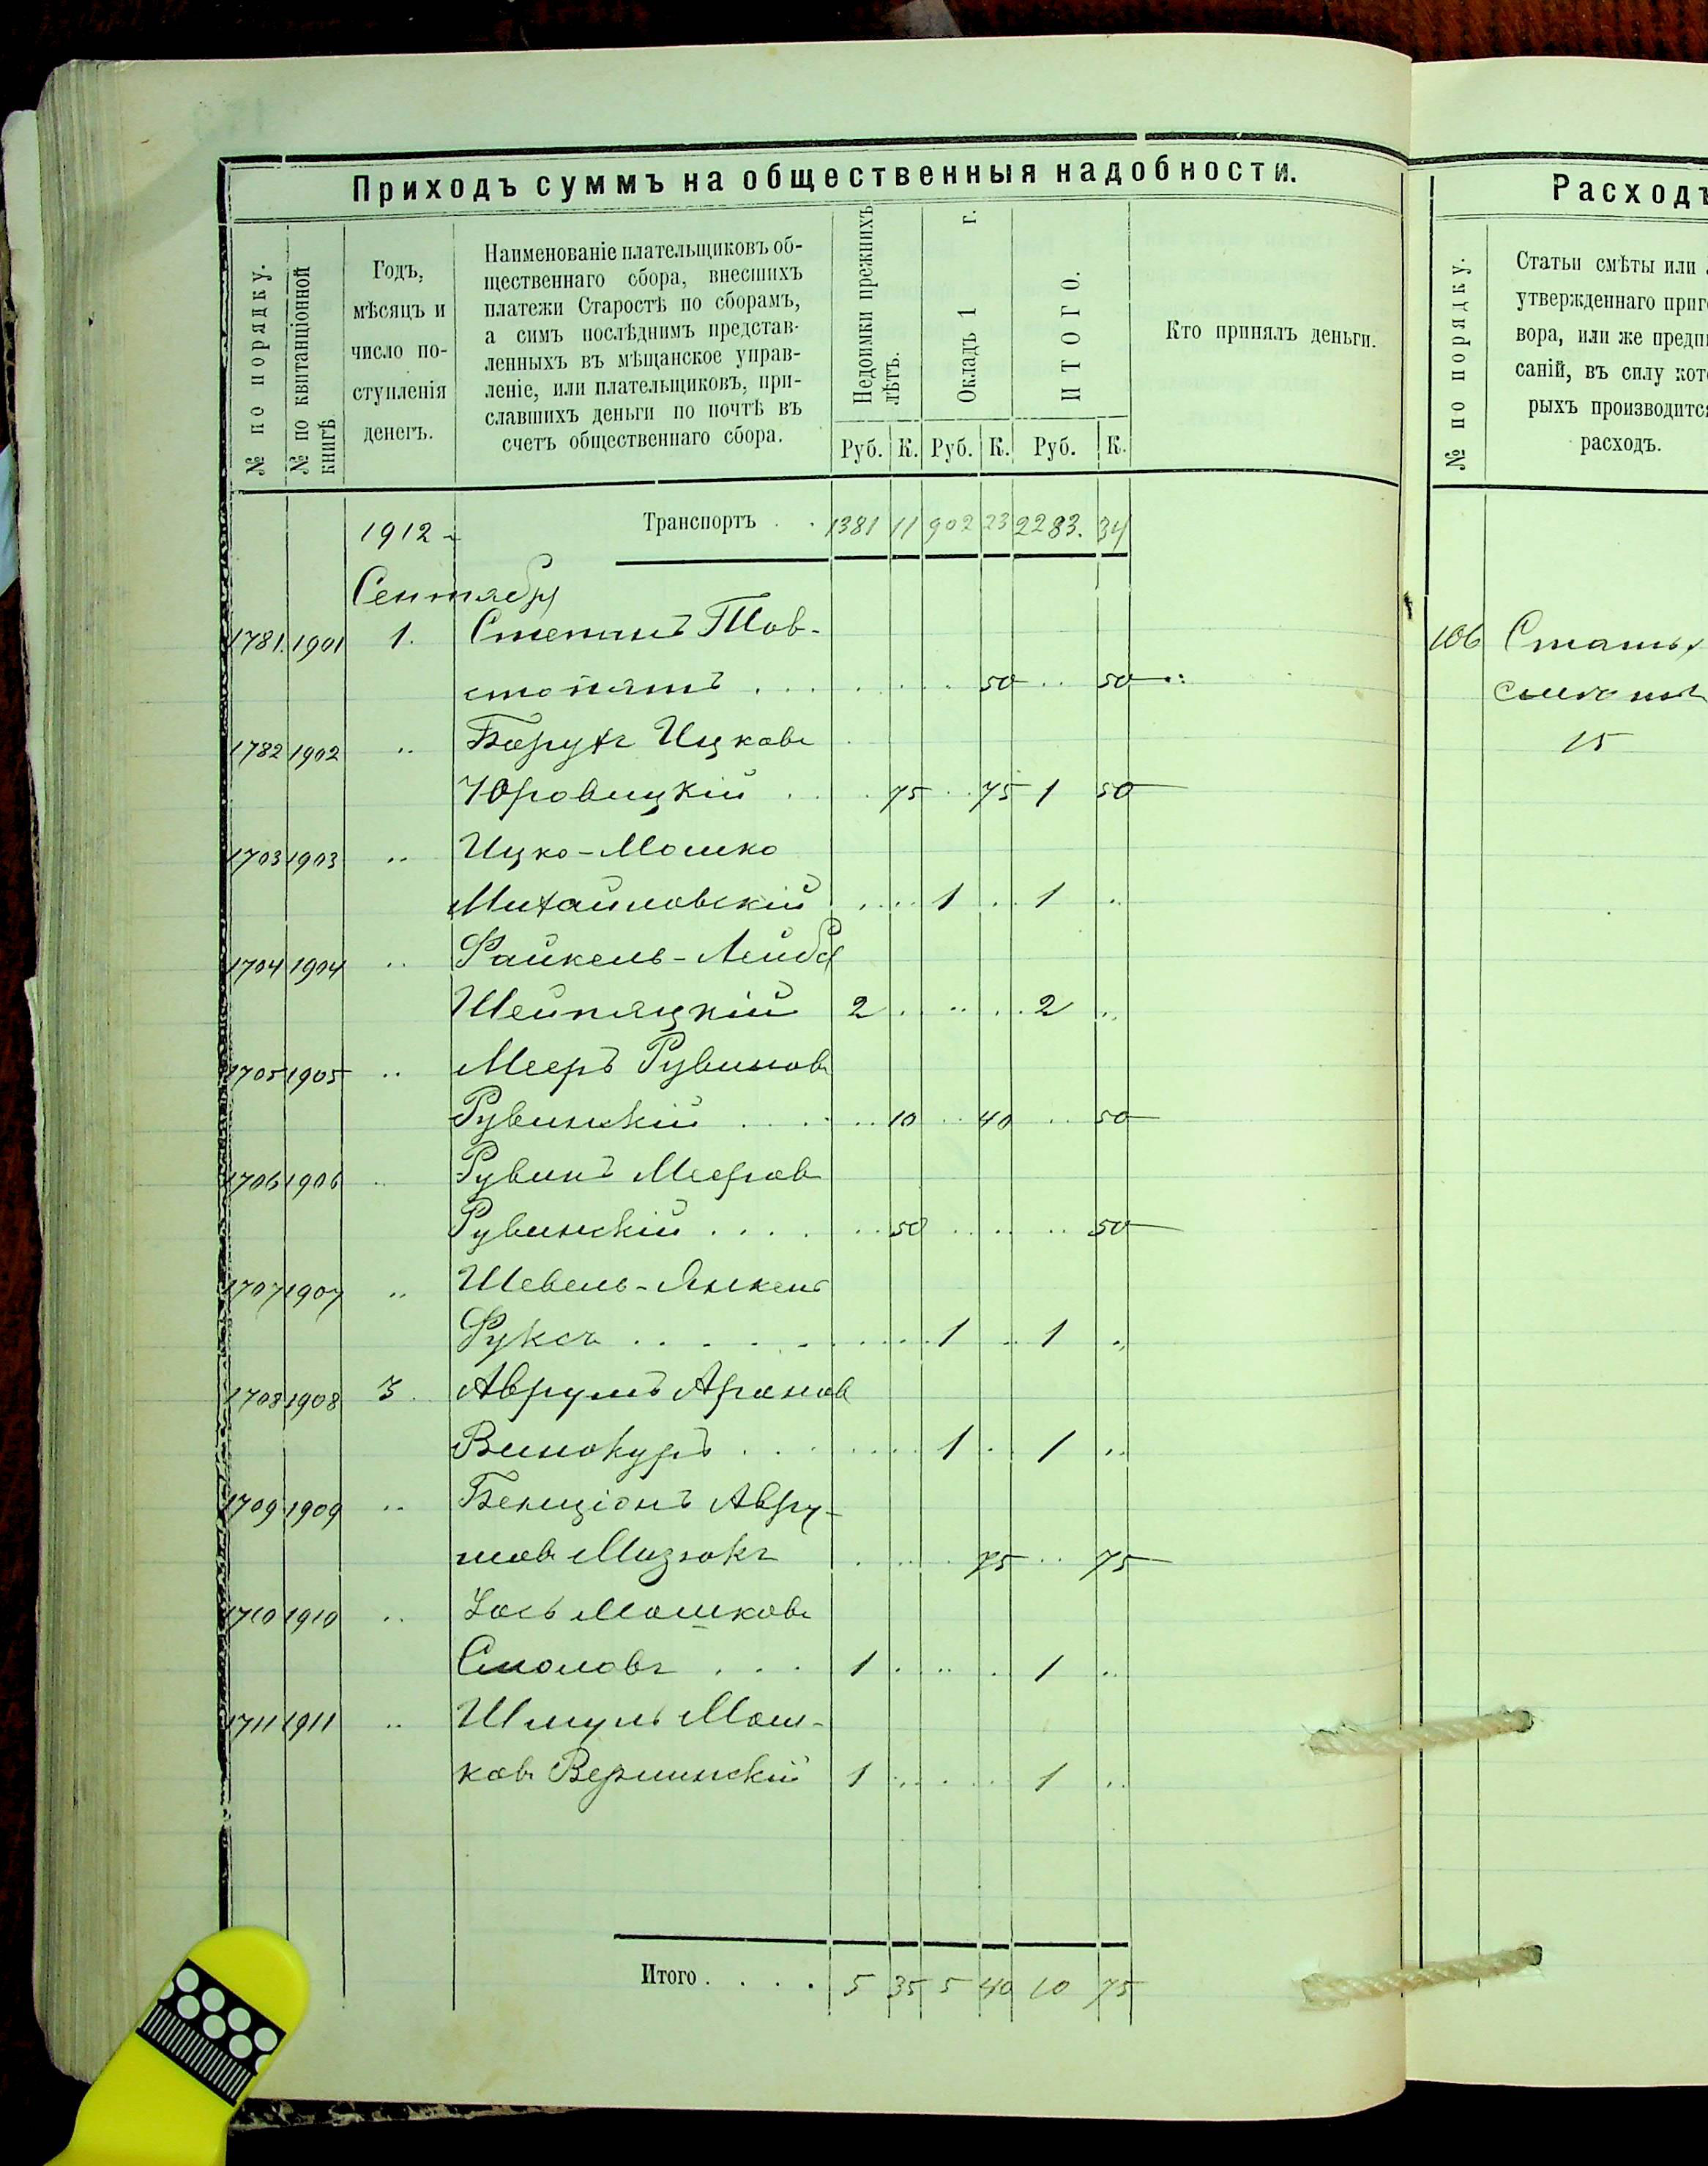 Приходъ суммъ на общественныя надобности.
№ по порядку.
№ по квитанціонной книгѣ
Годъ, мѣсяцъ и число поступленія денегъ.
Наименованіе плательщиковъ об-
щественнаго сбора, внесшихъ
платежи Старостѣ по сборамъ,
а симъ послѣднимъ представ-
ленныхъ въ мѣщанское управ-
леніе, или плательщиковъ, при-
славшихъ деньги по почтѣ въ
счетъ общественнаго сбора.
Недоимки прежнихъ лѣтъ.
Окладъ 1 г.
ИТОГО.
Кто принялъ деньги.
Руб. К. Руб. К. Руб. К.
1912 Транспортъ . . 1381 11 902 23 2283. 34
Сентября
1781. 1901 1. Степанъ Тов-
50 50
1782 1902 .. Борухъ Ицковъ
Юровицкій . . 75 . . 75 1 50
1703 1903 .. Ицко-Мошко
Михайловскій . . . . 1 . . 1 ..
1704 1904 .. Файкель-Лейба
2 . .. . . 2 ..
1705 1905 .. Мееръ Рувиновъ
Рувинскій . . . . . . 10 . . 40 . . 50
1706 1906 .. Рувинъ Мееровъ
Рувинскій . . . . . . 50 . . . . . . 50
1707 1907 .. Шевель-Янкель
Фуксъ . . . . . . . . 1 . . 1 ..
1708 1908 3. Аврумъ Ароновъ
Винокуръ . . . . . . 1 . . 1 ..
1709 1909 .. Бенціонъ Авру-
мовъ Мизюкъ . . . . 75 . . 75
1710 1910 .. Іось Мошковъ
Смоловъ . . . 1 . .. . 1 ..
1711 1911 .. Шмуль Мош-
ковъ Вершинскій 1 . . . . 1 ..
Итого . . . . 5 35 5 40 10 75
Расходъ
№ по порядку.
Статьи смѣты или
утвержденнаго приго
вора, или же предпи
саній, въ силу кото
рыхъ производится
расходъ.
106 Статья
смѣты
15